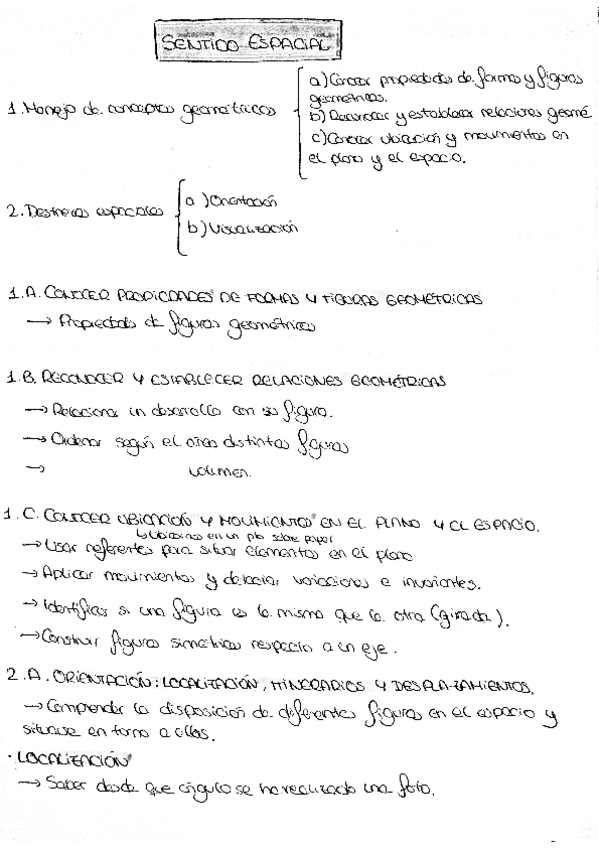 SENTIDO ESPACIAL
1. Manejo de conceptos geométricos
a) Conocer propiedades de formas y figuras
geométricas.
b) Reconocer y establecer relaciones geomé.
c) Conocer ubicación y movimientos en
el plano y el espacio.
2. Destrezas espaciales
a) Orientación
b) Visualización
1.A. CONOCER PROPIEDADES DE FORMAS Y FIGURAS GEOMÉTRICAS
→ Propiedades de figuras geométricas
1.B. RECONOCER Y ESTABLECER RELACIONES GEOMÉTRICAS
→ Relacionar un desarrollo con su figura.
→ Ordenar según el área distintas figuras
→ volumen.
1.C. CONOCER UBICACIÓN Y MOVIMIENTOS EN EL PLANO Y EL ESPACIO.
↳ Ubicarnos en un pto sobre papel
→ Usar referentes para situar elementos en el plano
→ Aplicar movimientos y detectar variaciones e invariantes.
→ Identificar si una figura es la misma que la otra (girada).
→ Construir figuras simétricas respecto a un eje.
2.A. ORIENTACIÓN: LOCALIZACIÓN, ITINERARIOS Y DESPLAZAMIENTOS.
→ Comprender la disposición de diferentes figuras en el espacio y
situarse en torno a ellas.
· LOCALIZACIÓN
→ Saber desde que ángulo se ha realizado una foto.